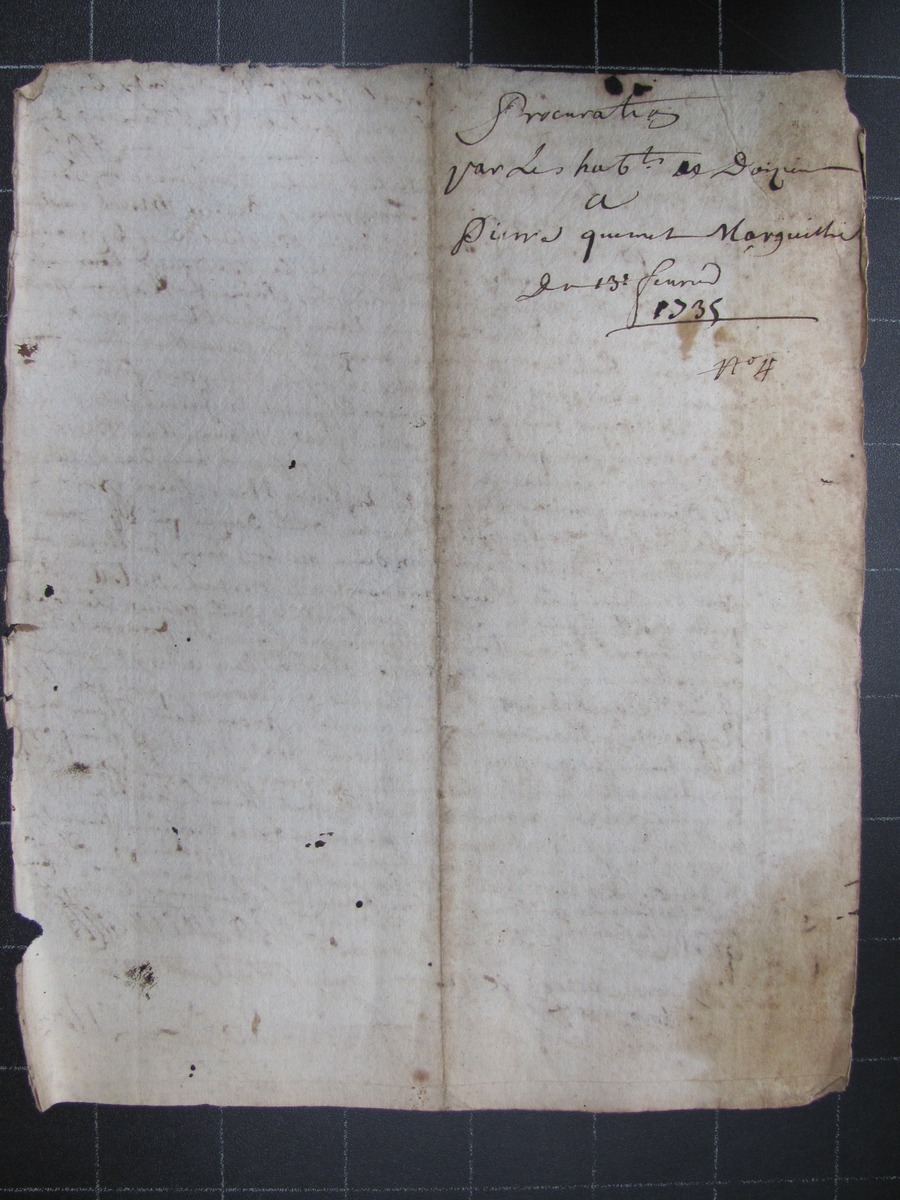 Procuration
par Les hab.ts de
a
Pierre quemet Marguillie
Du 13e feurie
1735
No 4